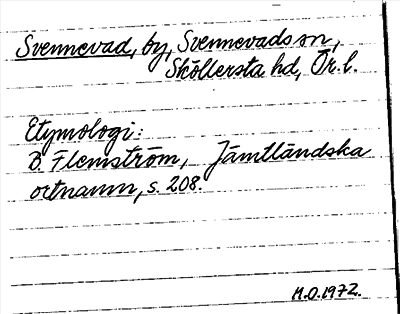 Svennevad, by, Svennevads sn,
Sköllersta hd, Ör. l.
Etymologi:
B. Flemström, Jämtländska
ortnamn, s. 208.
M.O. 1972.